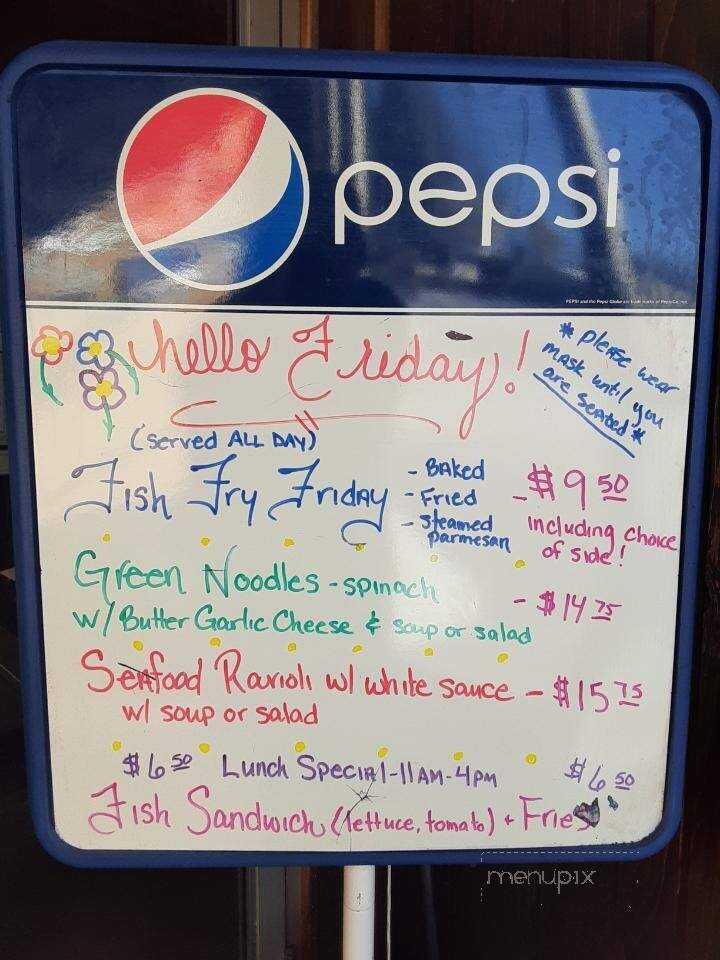 pepsi
PEPSI and the Pepsi Globe are trademarks of PepsiCo, Inc.
hello Friday!
* please wear
mask until you
are seated *
(served ALL DAY)
Fish Fry Friday
- Baked
- Fried
- steamed
parmesan
- $9 50
including choice
of side!
Green Noodles - spinach
w/ Butter Garlic Cheese & soup or salad
- $14 75
Seafood Ravioli w/ white sauce - $15 75
w/ soup or salad
$6 50 Lunch Special - 11AM - 4PM $6 50
Fish Sandwich (lettuce, tomato) + Fries
menupix